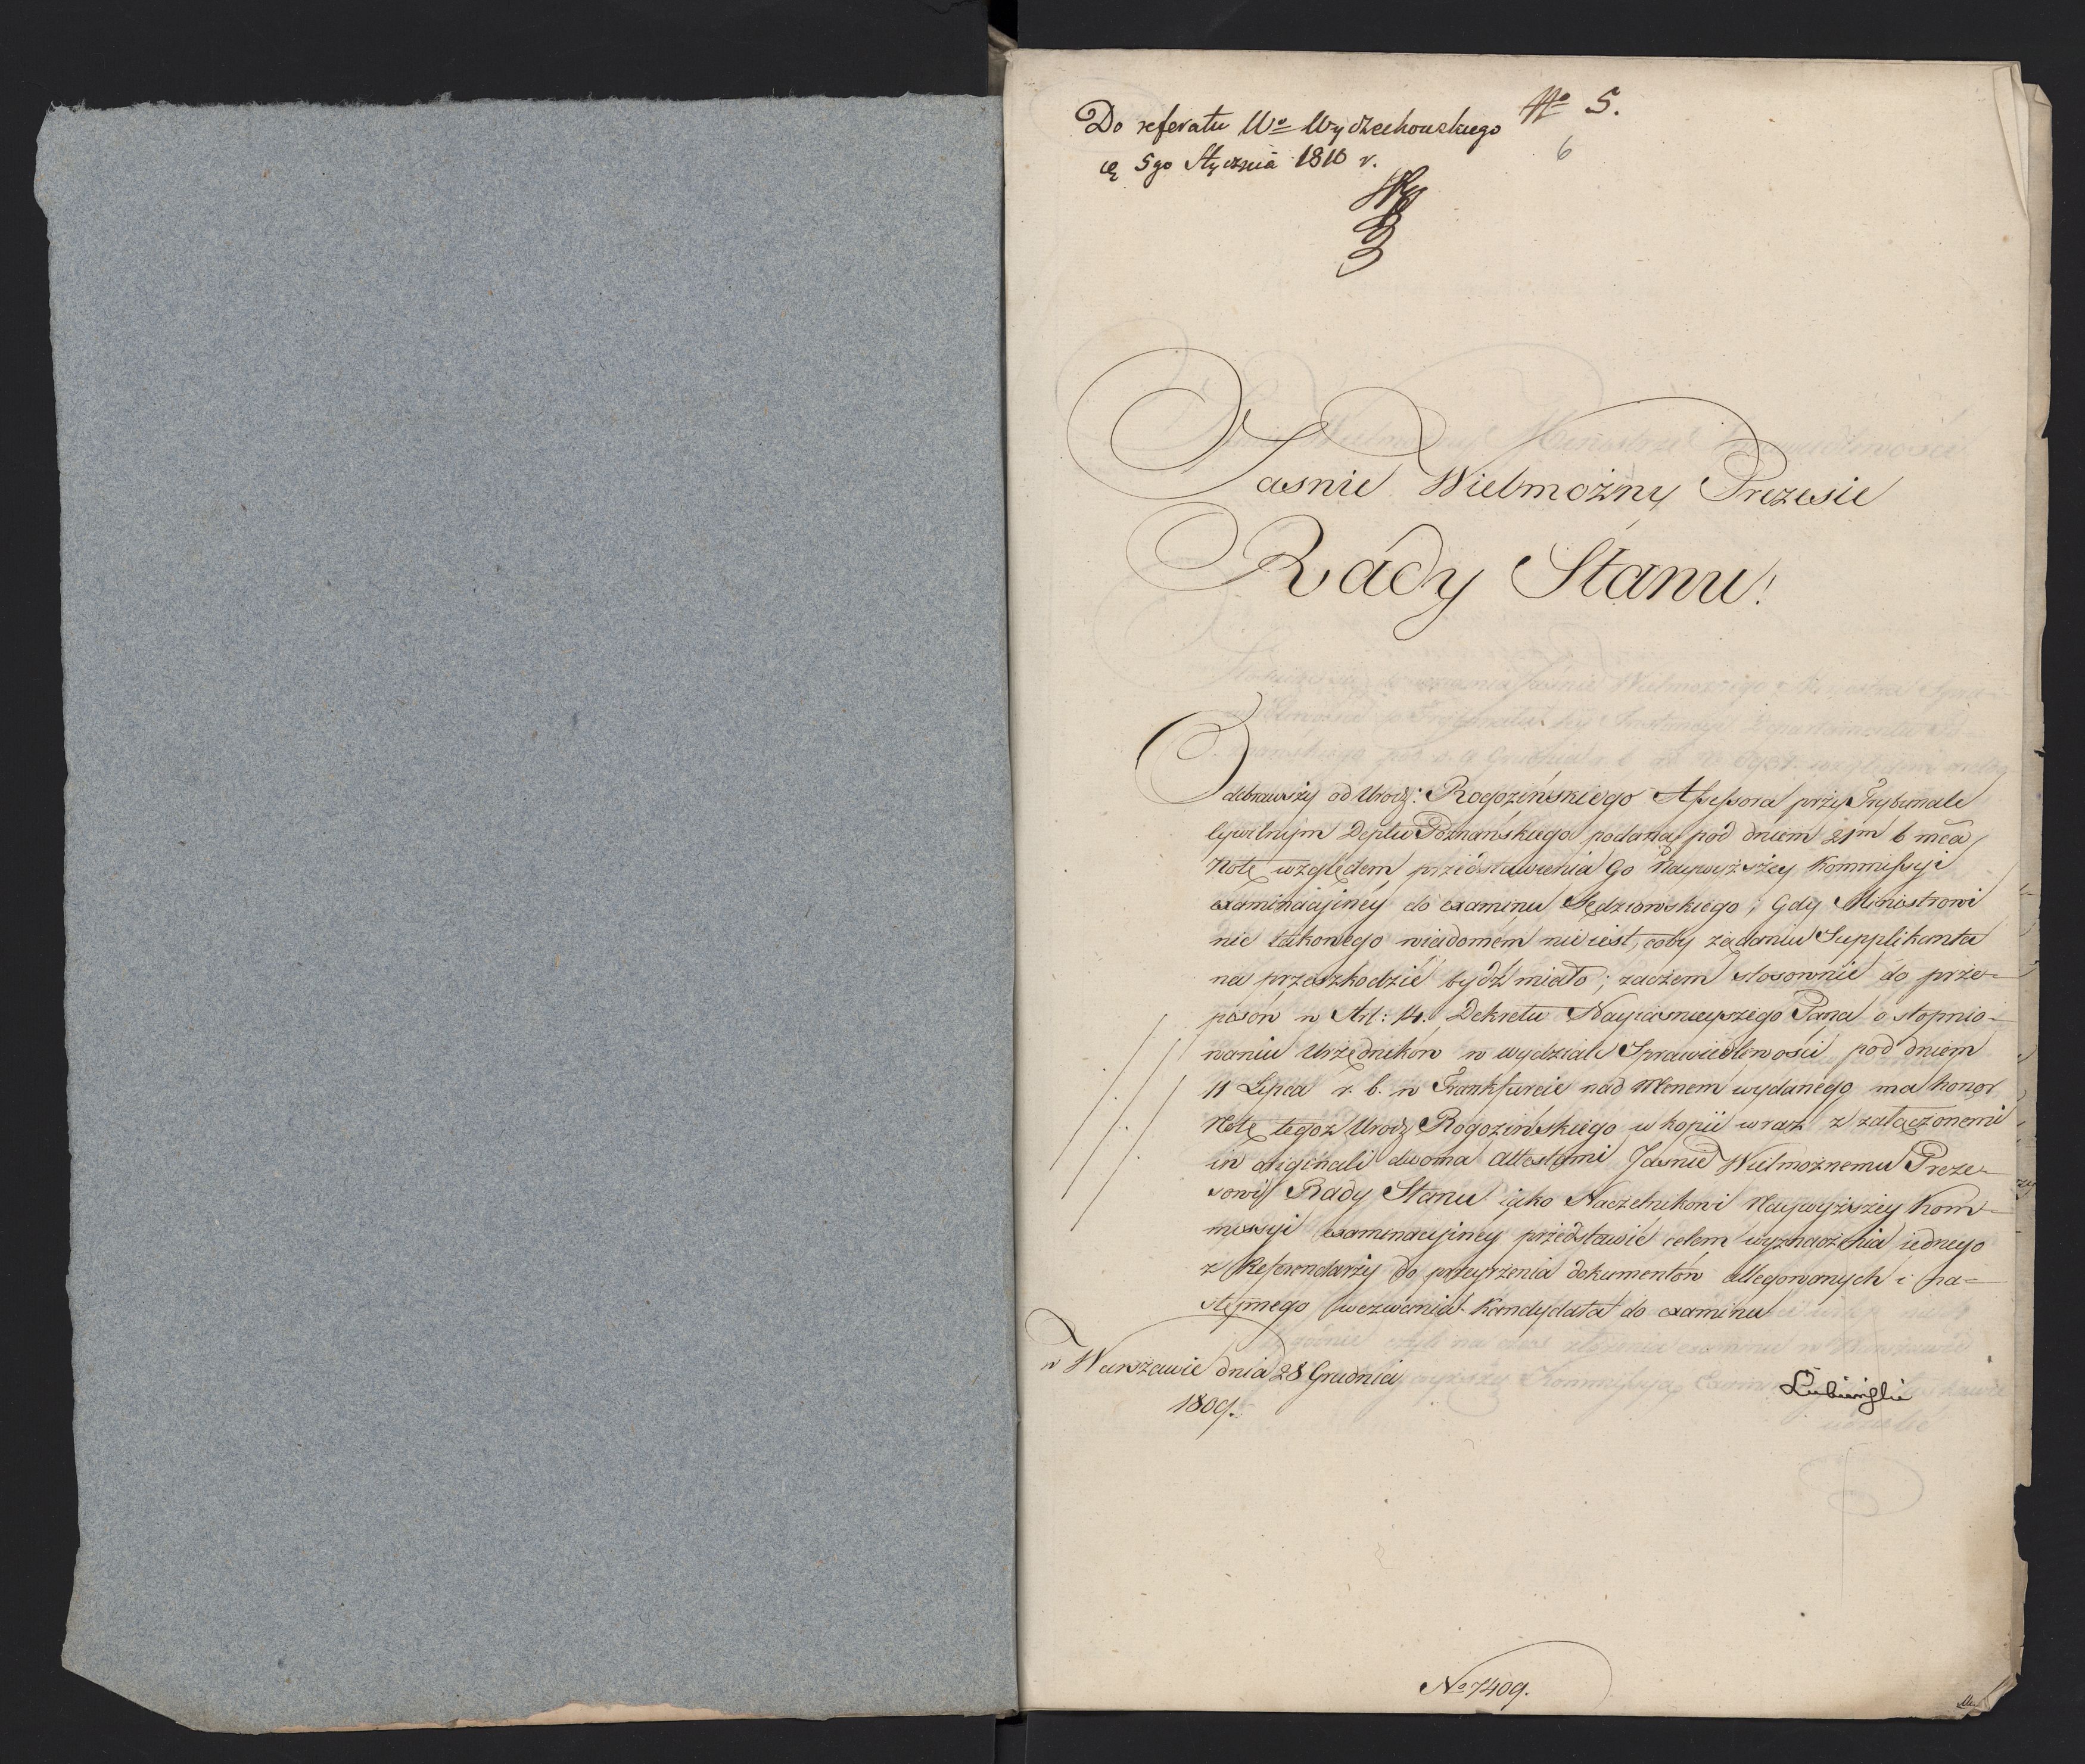 Do referatu Wo Wyczechowskiego
No 5.
6
d. 5go Stycznia 1810 r.
Jasnie Wielmożny Prezesie
Rady Stanu!
Odebrawszy od Urodz: Rogozińskiego Assessora przy Trybunale
Cywilnym Deptu Poznańskiego podaną pod dniem 21m b mca
Notę względem przedstawienia Go Naywyższey Kommissyi
examinacyiney do examinu Sędziowskiego; Gdy Ministrowi
nic takowego wiadomem nie iest, coby żądaniu Supplikanta
na przeszkodzie bydź miało; zaczem stosownie do prze-
pisow w Art: 14. Dekretu Nayiasnieyszego Pana o stopnio-
waniu Urzędnikow w wydziale Sprawiedliwości pod dniem
11 Lipca r. b. w Frankfurcie nad Menem wydanego ma honor
Notę tegoż Urodz Rogozińskiego w kopii wraz z załączonemi
in originali dwoma attestami Jasnie Wielmożnemu Preze-
sowi Rady Stanu iako Naczelnikowi Naywyższey Kom-
missyi examinacyiney przedstawić celem wyznaczenia iednego
z Referendarzy do przeyrzenia dokumentow allegowanych i na-
stępnego wezwania Kandydata do examinu
w Warszawie dnia 28 Grudnia
1809.
Łubieński
No 7409.